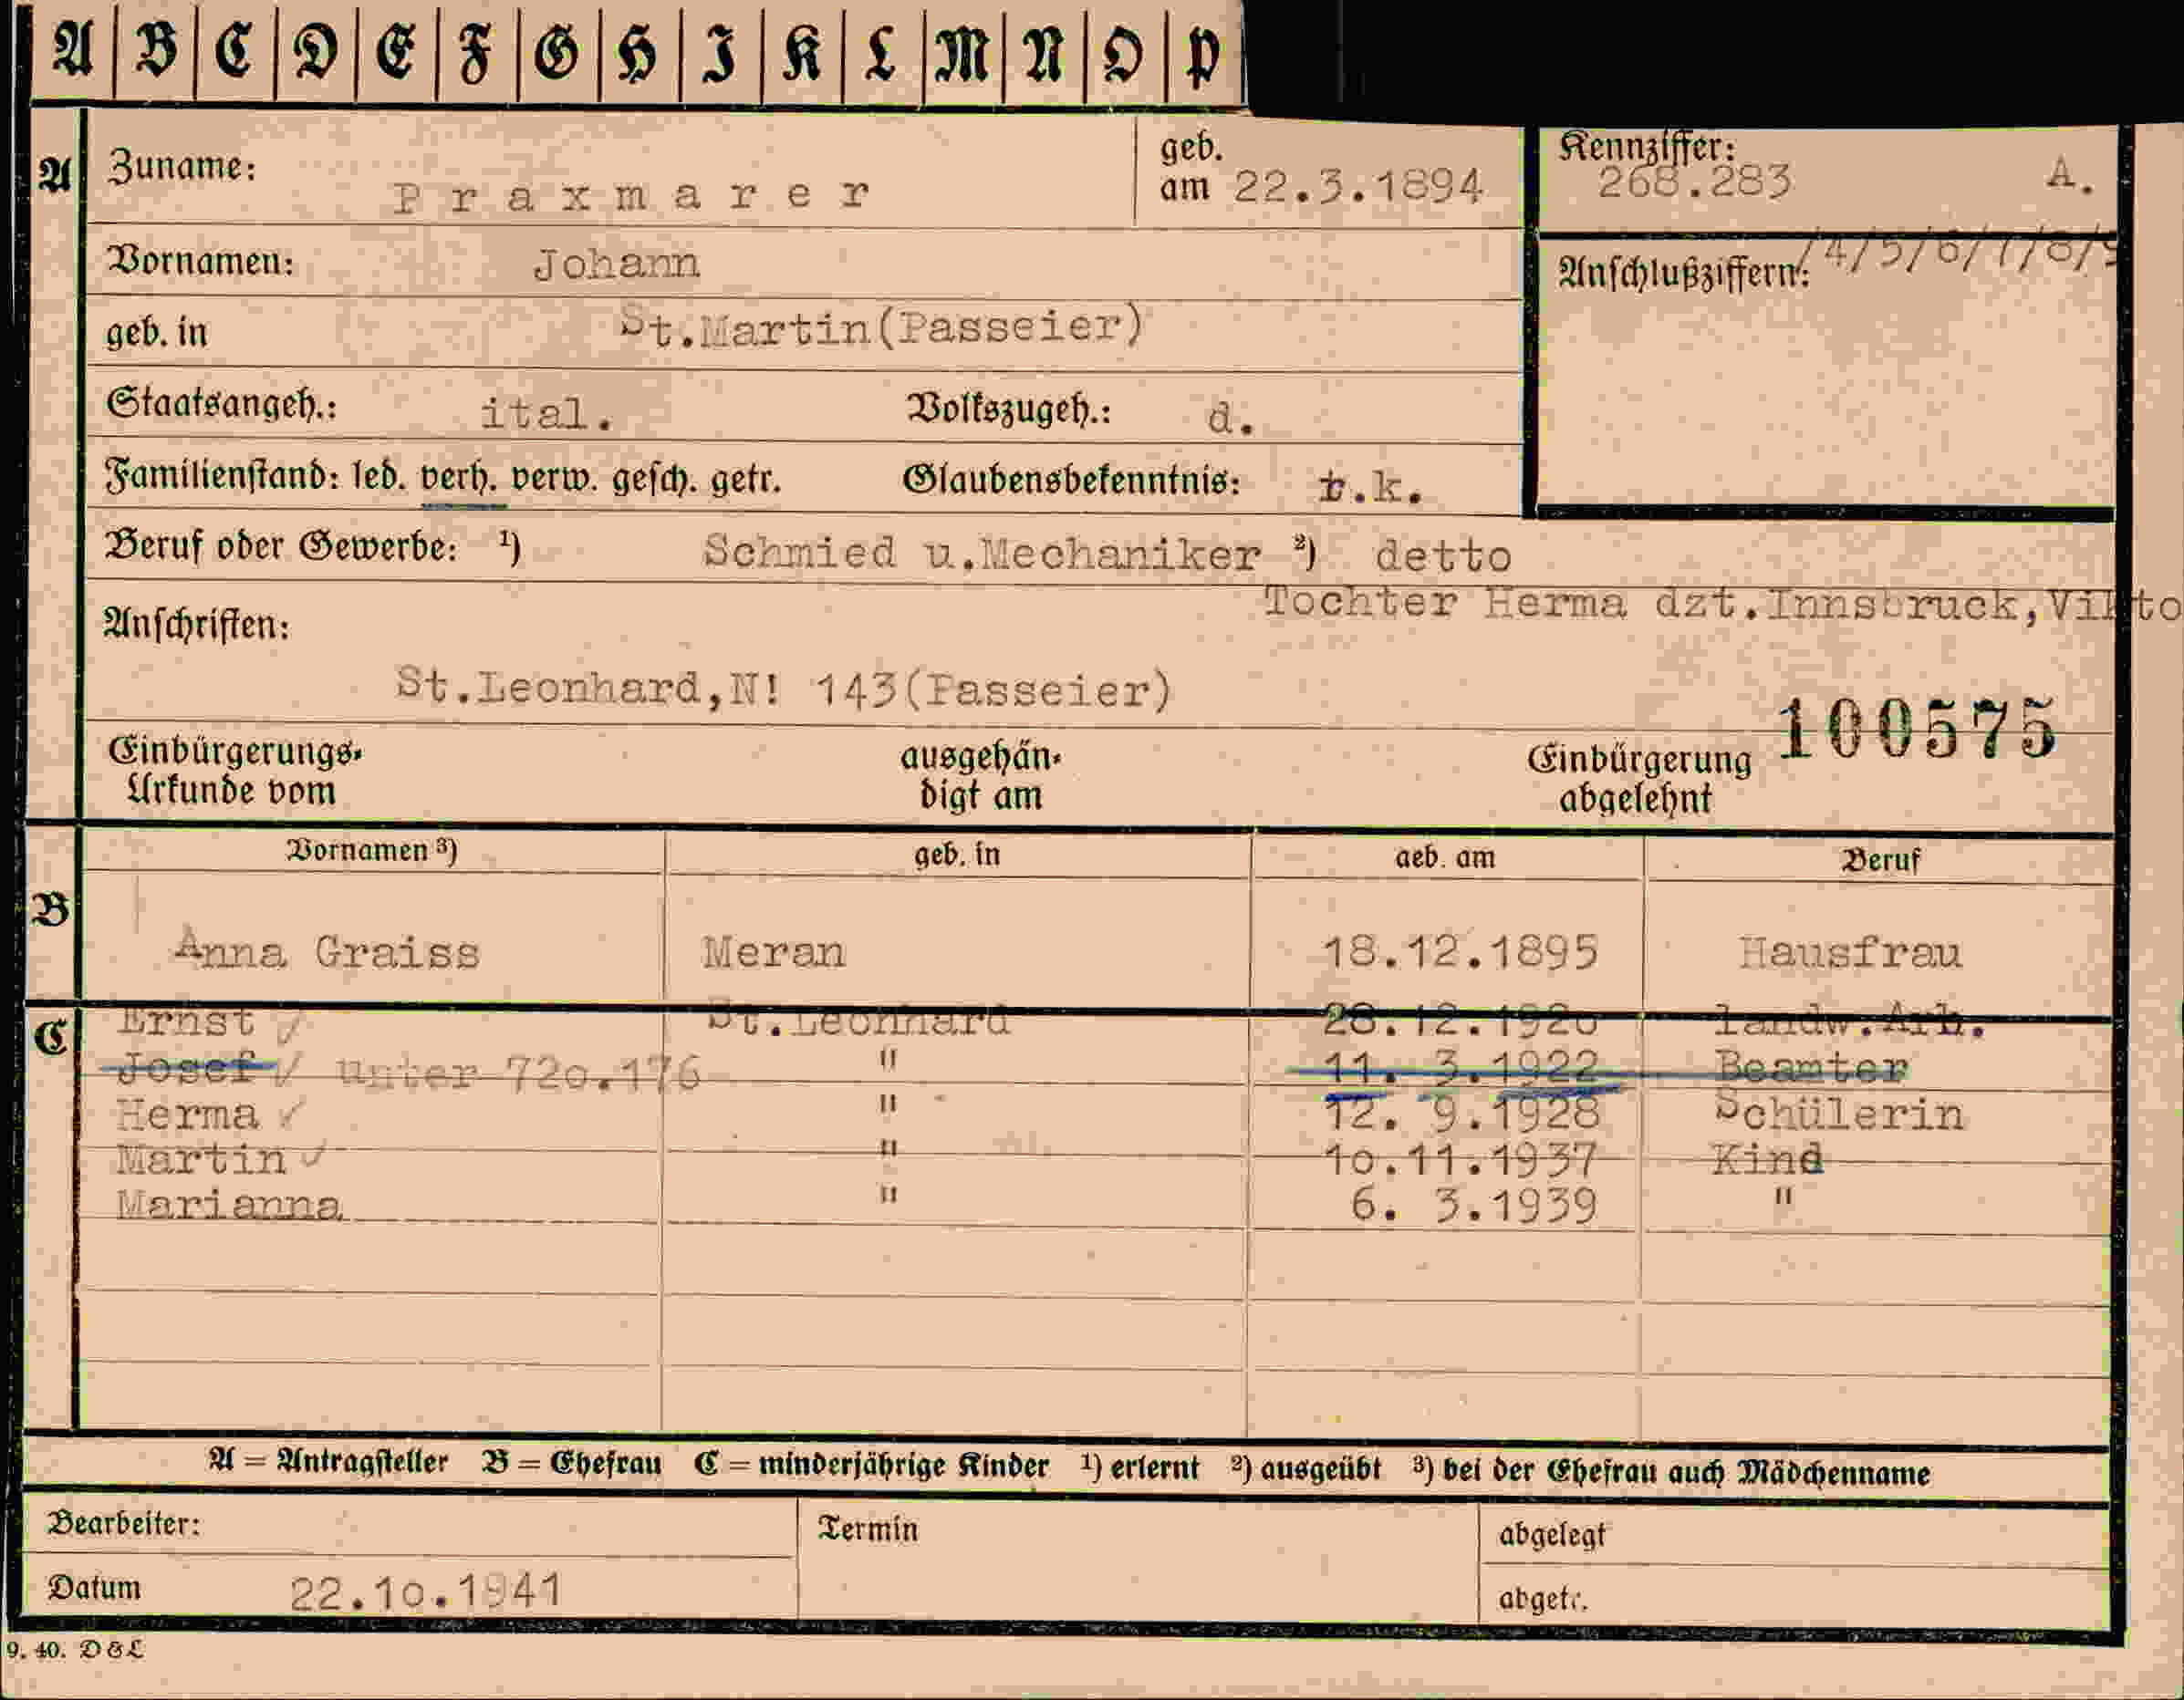 A B C D E F G H I K L M N O P
A Zuname: Praxmarer geb. am 22.3.1894 Kennziffer: 268.283 A.
Vornamen: Johann Anschlußziffern: /4/5/6/7/8/9
geb. in St.Martin(Passeier)
Staatsangeh.: ital. Volkszugeh.: d.
Familienstand: led. verh. verw. gesch. getr. Glaubensbekenntnis: r.k.
Beruf oder Gewerbe: ¹) Schmied u.Mechaniker ²) detto
Tochter Herma dzt.Innsbruck,Vikto
Anschriften:
St.Leonhard,N! 143(Passeier)
100575
Einbürgerungs- ausgehän- Einbürgerung
Urkunde vom digt am abgelehnt
Vornamen ³) geb. in geb. am Beruf
B Anna Graiss Meran 18.12.1895 Hausfrau
C Ernst St.Leonhard 28.12.1920 landw.Arb.
Josef unter 72o.176 " 11. 3.1922 Beamter
Herma " 12. 9.1928 Schülerin
Martin " 1o.11.1937 Kind
Marianna " 6. 3.1939 "
A = Antragsteller B = Ehefrau C = minderjährige Kinder ¹) erlernt ²) ausgeübt ³) bei der Ehefrau auch Mädchenname
Bearbeiter: Termin abgelegt
Datum 22.1o.1941 abgetr.
9. 40. D&L